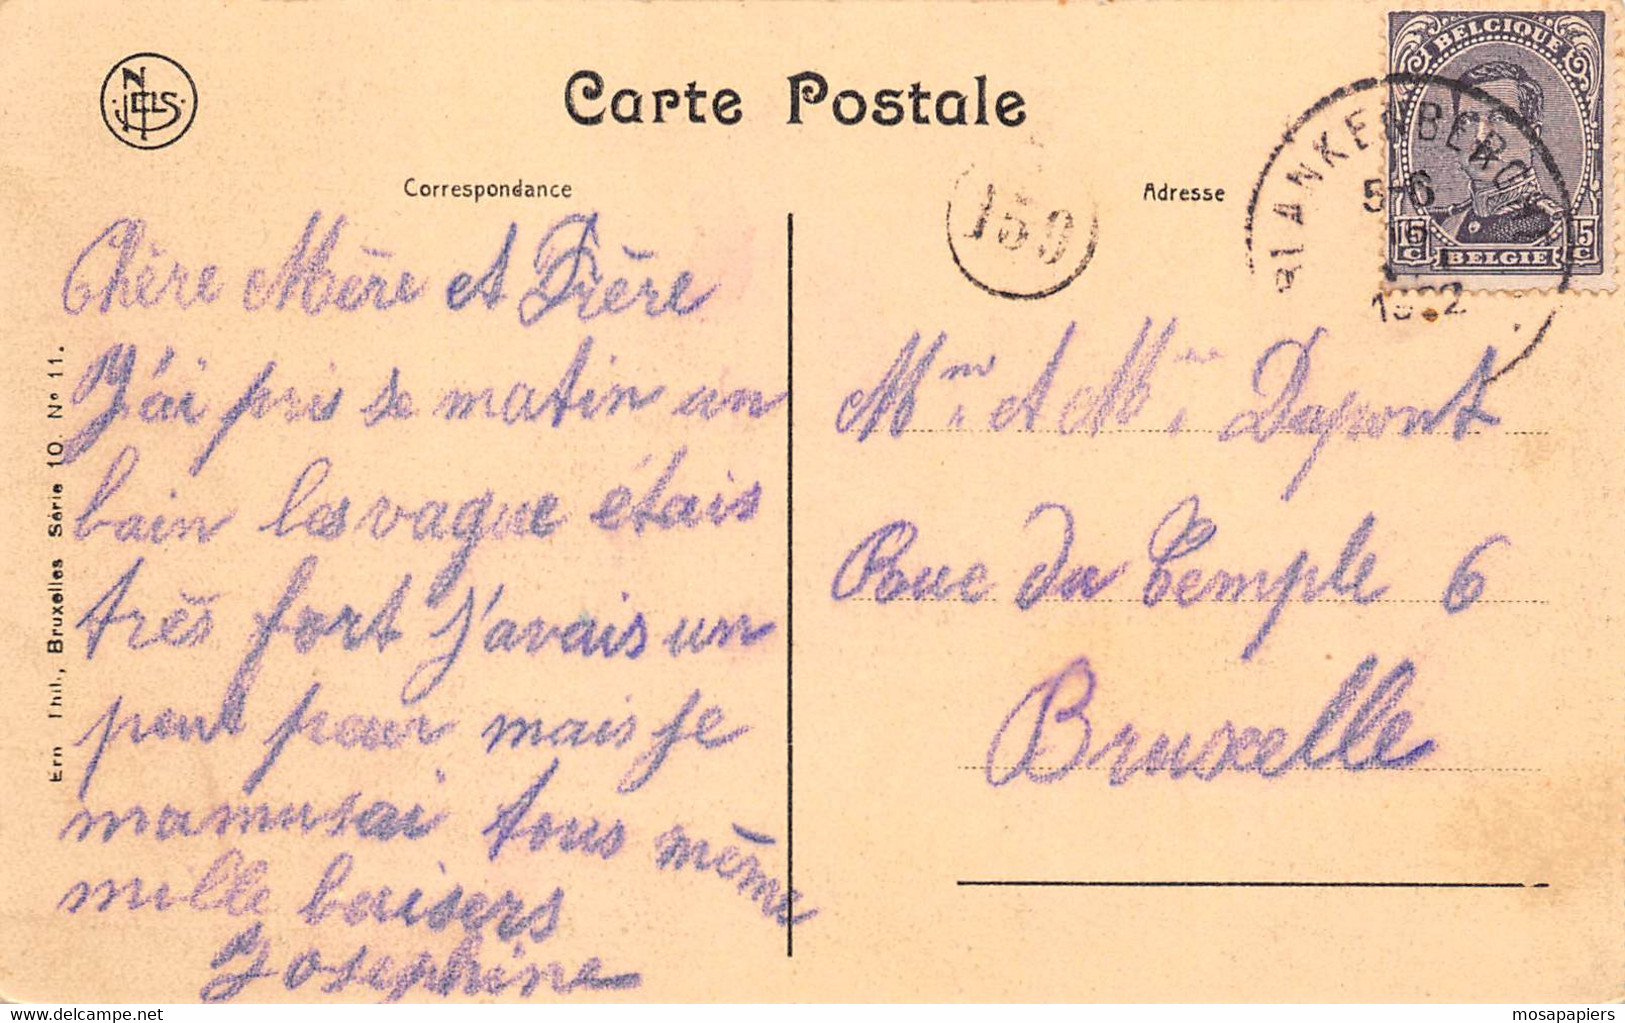 NELS
Carte Postale
Correspondance
Adresse
BELGIQUE
15 C
15 C
BELGIE
BLANKENBERGE
5-6
159
Chère Mère et Frère
J'ai pris se matin un
bain les vague étais
très fort j'avais un
peut paur mais je
mamusai tous même
mille baisers
Josephine
Mm. et Mme. Dupont
Rue du Temple 6
Bruxelle
Ern. Thil., Bruxelles Série 10. Nº 11.
delcampe.net
mosapapiers